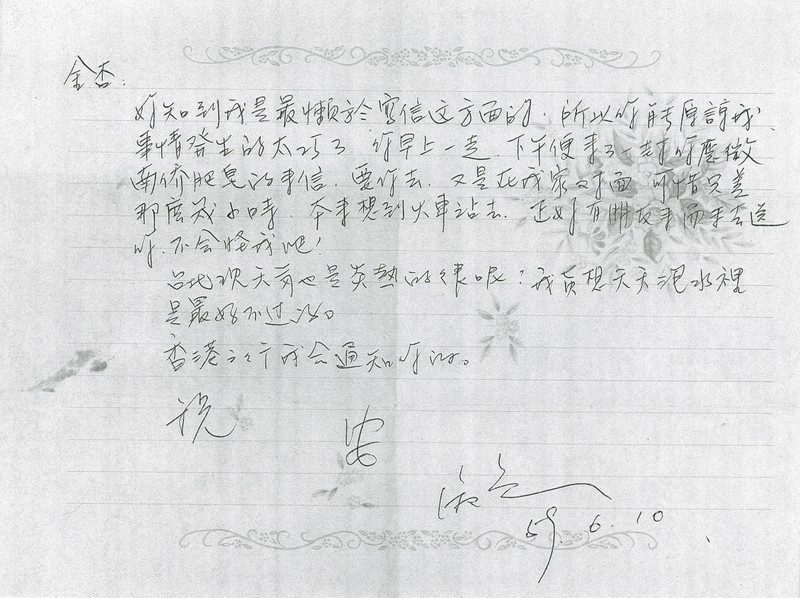 金杏:
妳知到我是最懶於寫信這方面的,所以妳能原諒我
事情發生的太巧了,妳早上一走,下午便來了一封妳應徵
南僑肥皂的來信,要妳去,又是在我家對面,可惜只差
那麼幾小時,本來想到火車站去,正好有朋友來而未去送
妳,不会怪我吧!
台北現天氣也是炎熱的很呢?我真想天天泡水裡
是最好不过的。
香港之行我会通知妳的。
祝
安
淑
59. 6. 10